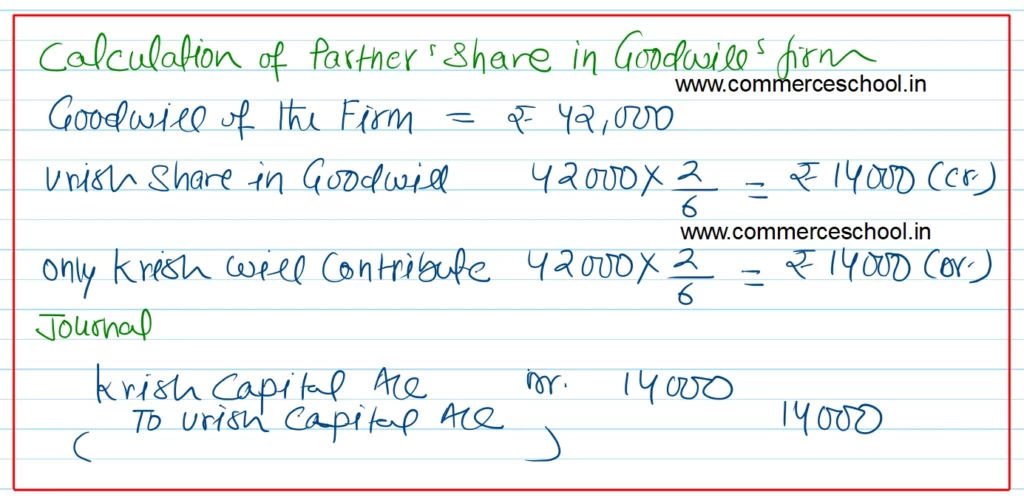 Calculation of Partner's Share in Goodwill's firm
www.commerceschool.in
Goodwill of the Firm = ₹ 42,000
Urish Share in Goodwill 42000 × 2/6 = ₹ 14000 (Cr.)
www.commerceschool.in
only Krish will Contribute 42000 × 2/6 = ₹ 14000 (Dr.)
Journal
Krish Capital A/c Dr. 14000
To Urish Capital A/c 14000
( )